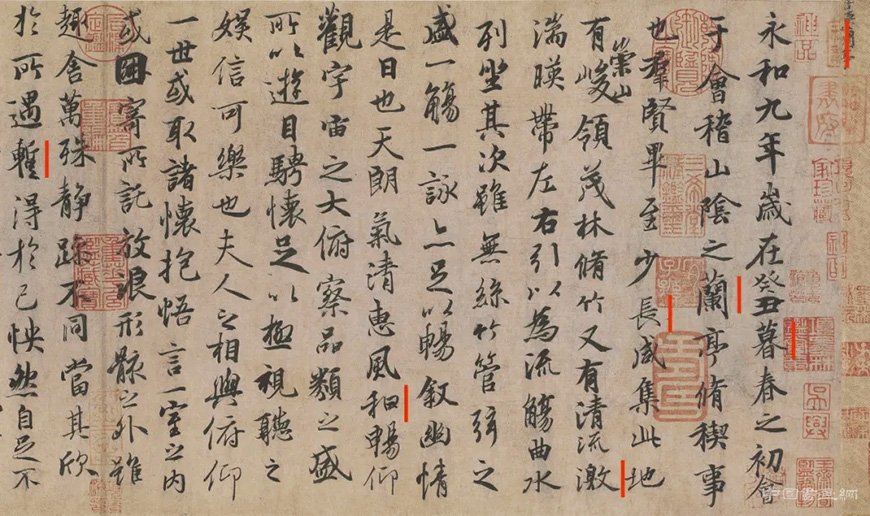 永和九年歲在癸丑暮春之初會
于會稽山陰之蘭亭脩稧事
也羣賢畢至少長咸集此地
有崇山峻領茂林脩竹又有清流激
湍暎帶左右引以為流觴曲水
列坐其次雖無絲竹管弦之
盛一觴一詠亦足以暢叙幽情
是日也天朗氣清惠風和暢仰
觀宇宙之大俯察品類之盛
所以遊目騁懷足以極視聽之
娛信可樂也夫人之相與俯仰
一世或取諸懷抱悟言一室之內
或因寄所託放浪形骸之外雖
趣舍萬殊靜躁不同當其欣
於所遇暫得於己怏然自足不
中國書畫網